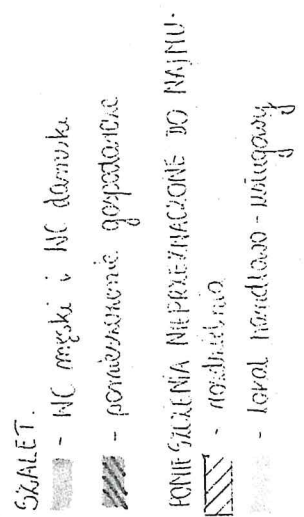 SZALET.
- WC męski i WC damski
- pomieszczenie gospodarcze
POMIESZCZENIA NIEPRZEZNACZONE DO NAJMU.
- rozdzielnia
- lokal handlowo - usługowy